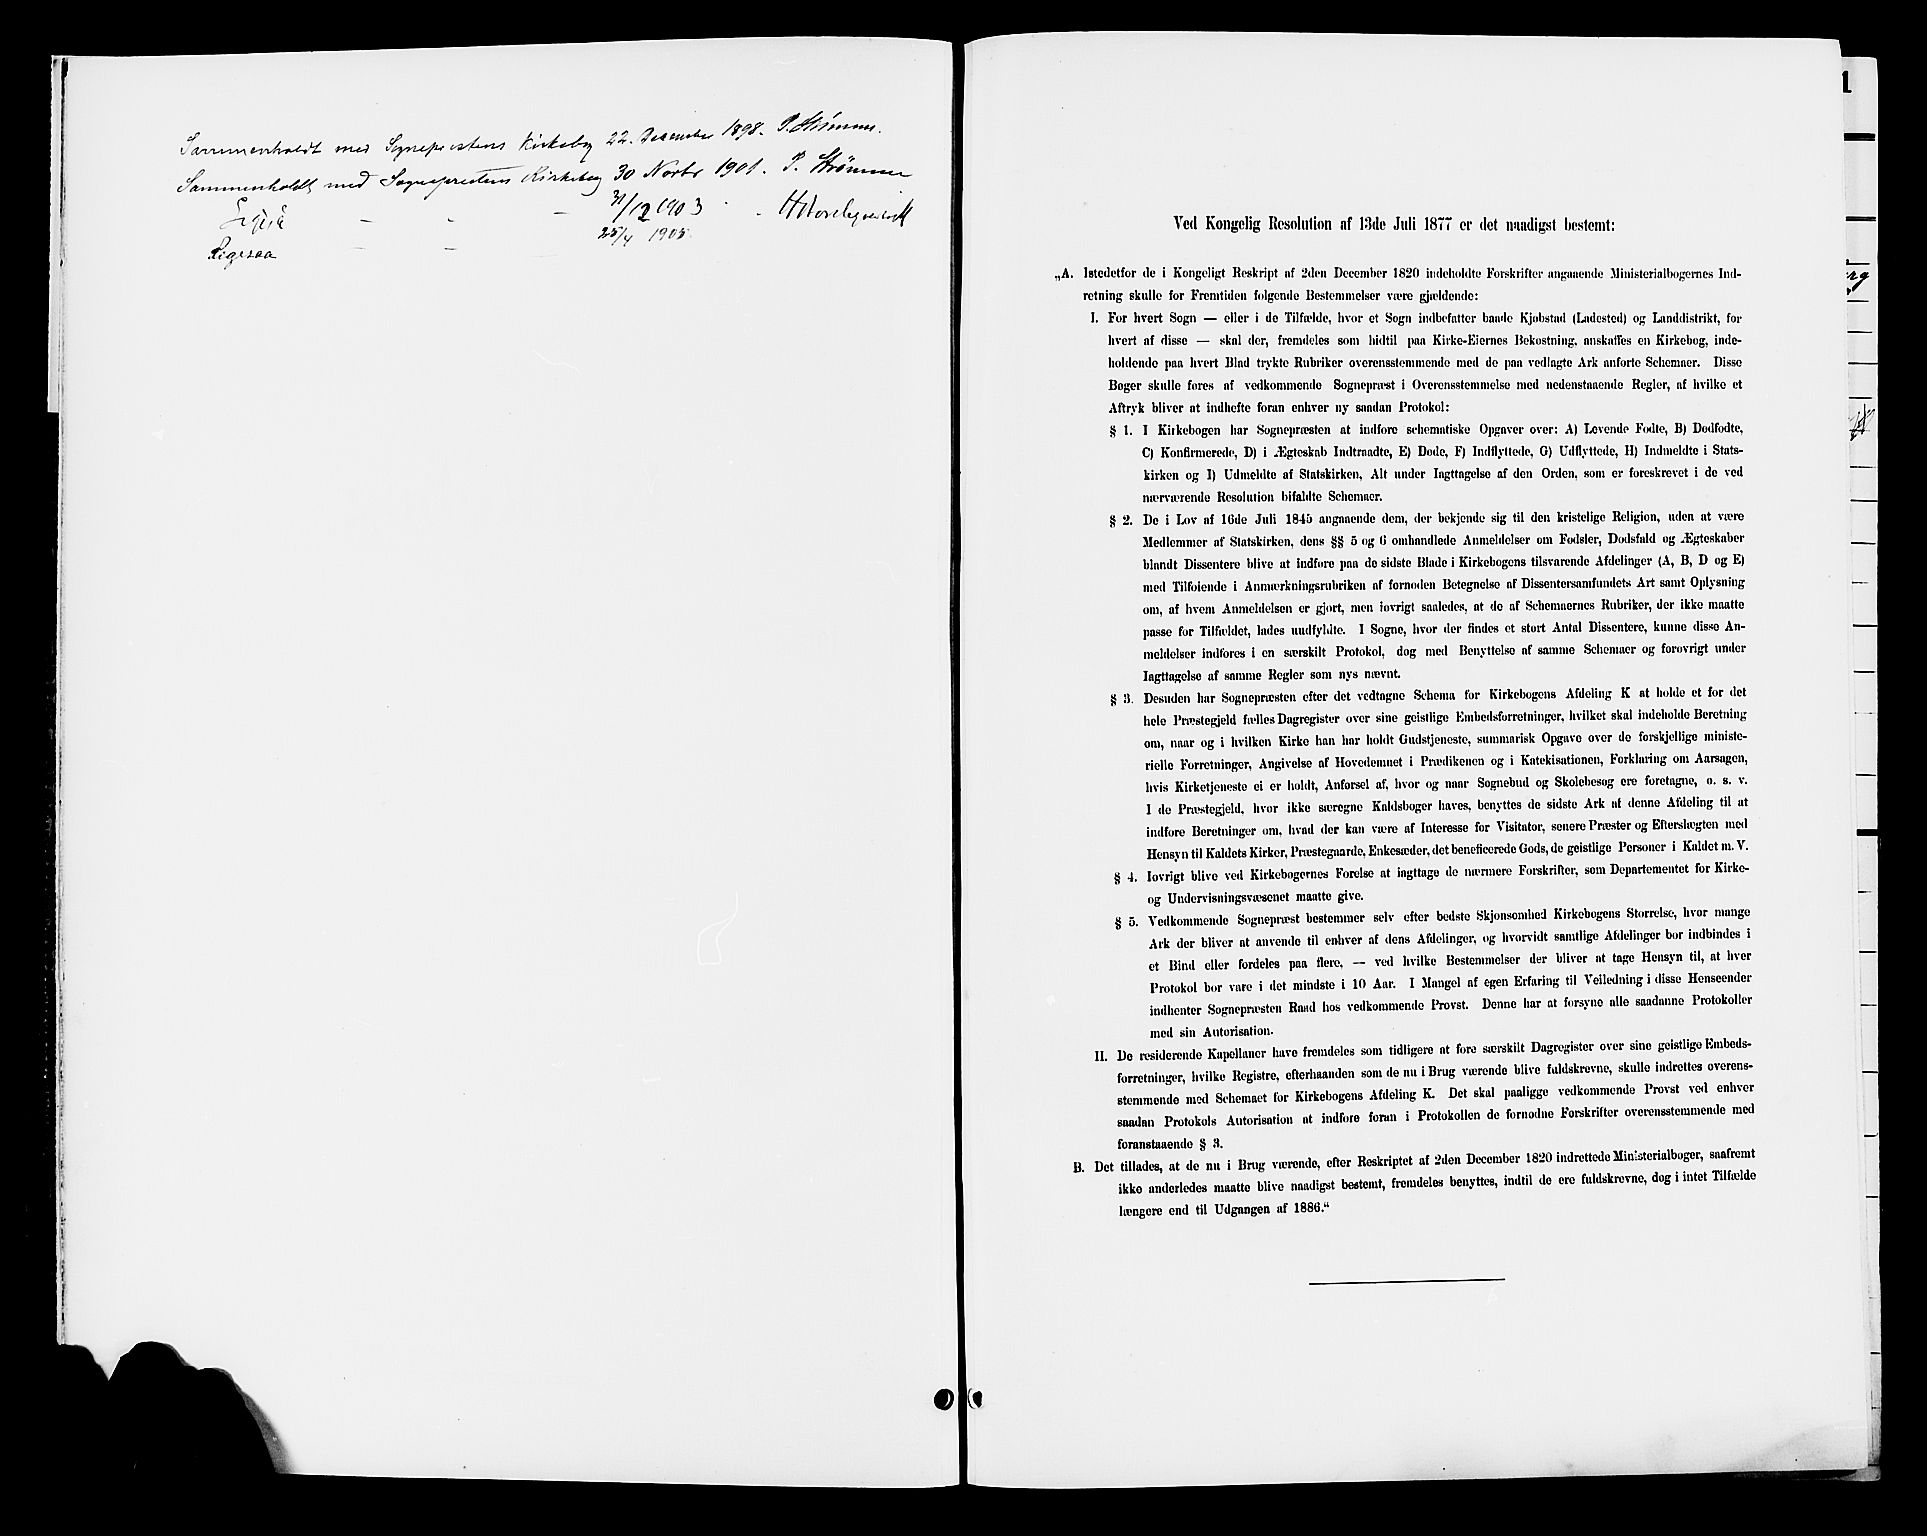 Sammenholdt med Sogneprestens Kirkebog 22. December 1898. P. Strømme.
Sammenholdt med Sogneprestens Kirkebog 30 Novbr 1901. P. Strømme
Ligesaa — - — 31/12 1903
Ligesaa — — 25/4 1905.
Ved Kongelig Resolution af 13de Juli 1877 er det naadigst bestemt:
„A. Istedetfor de i Kongeligt Reskript af 2den December 1820 indeholdte Forskrifter angaaende Ministerialbogernes Ind-
retning skulle for Fremtiden folgende Bestemmelser være gjældende:
I. For hvert Sogn — eller i de Tilfælde, hvor et Sogn indbefatter baade Kjobstad (Ladested) og Landdistrikt, for
hvert af disse — skal der, fremdeles som hidtil paa Kirke-Eiernes Bekostning, anskaffes en Kirkebog, inde-
holdende paa hvert Blad trykte Rubriker overensstemmende med de paa vedlagte Ark anforte Schemaer. Disse
Boger skulle fores af vedkommende Sognepræst i Overensstemmelse med nedenstaaende Regler, af hvilke et
Aftryk bliver at indhefte foran enhver ny saadan Protokol:
§ 1. I Kirkebogen har Sognepræsten at indfore schematiske Opgaver over: A) Levende Fodte, B) Dodfodte,
C) Konfirmerede, D) i Ægteskab Indtraadte, E) Dode, F) Indflyttede, G) Udflyttede, H) Indmeldte i Stats-
kirken og I) Udmeldte af Statskirken, Alt under Iagttagelse af den Orden, som er foreskrevet i de ved
nærværende Resolution bifaldte Schemaer.
§ 2. De i Lov af 16de Juli 1845 angaaende dem, der bekjende sig til den kristelige Religion, uden at være
Medlemmer af Statskirken, dens §§ 5 og 6 omhandlede Anmeldelser om Fodsler, Dodsfald og Ægteskaber
blandt Dissentere blive at indfore paa de sidste Blade i Kirkebogens tilsvarende Afdelinger (A, B, D og E)
med Tilfoiende i Anmærkningsrubriken af fornoden Betegnelse af Dissentersamfundets Art samt Oplysning
om, af hvem Anmeldelsen er gjort, men iovrigt saaledes, at de af Schemaernes Rubriker, der ikke maatte
passe for Tilfældet, lades uudfyldte. I Sogne, hvor der findes et stort Antal Dissentere, kunne disse An-
meldelser indfores i en særskilt Protokol, dog med Benyttelse af samme Schemaer og forovrigt under
Iagttagelse af samme Regler som nys nævnt.
§ 3. Desuden har Sognepræsten efter det vedtagne Schema for Kirkebogens Afdeling K at holde et for det
hele Præstegjeld fælles Dagregister over sine geistlige Embedsforretninger, hvilket skal indeholde Beretning
om, naar og i hvilken Kirke han har holdt Gudstjeneste, summarisk Opgave over de forskjellige ministe-
rielle Forretninger, Angivelse af Hovedemnet i Prædikenen og i Katekisationen, Forklaring om Aarsagen,
hvis Kirketjeneste ei er holdt, Anforsel af, hvor og naar Sognebud og Skolebesog ere foretagne, o. s. v.
I de Præstegjeld, hvor ikke særegne Kaldsboger haves, benyttes de sidste Ark af denne Afdeling til at
indfore Beretninger om, hvad der kan være af Interesse for Visitator, senere Præster og Efterslægten med
Hensyn til Kaldets Kirker, Præstegaarde, Enkesæder, det beneficerede Gods, de geistlige Personer i Kaldet m. V.
§ 4. Iovrigt blive ved Kirkebogernes Forelse at iagttage de nærmere Forskrifter, som Departementet for Kirke-
og Undervisningsvæsenet maatte give.
§ 5. Vedkommende Sognepræst bestemmer selv efter bedste Skjonsomhed Kirkebogens Storrelse, hvor mange
Ark der bliver at anvende til enhver af dens Afdelinger, og hvorvidt samtlige Afdelinger bor indbindes i
et Bind eller fordeles paa flere, — ved hvilke Bestemmelser der bliver at tage Hensyn til, at hver
Protokol bor vare i det mindste i 10 Aar. I Mangel af egen Erfaring til Veiledning i disse Henseender
indhenter Sognepræsten Raad hos vedkommende Provst. Denne har at forsyne alle saadanne Protokoller
med sin Autorisation.
II. De residerende Kapellaner have fremdeles som tidligere at fore særskilt Dagregister over sine geistlige Embeds-
forretninger, hvilke Registre, efterhaanden som de nu i Brug værende blive fuldskrevne, skulle indrettes overens-
stemmende med Schemaet for Kirkebogens Afdeling K. Det skal paaligge vedkommende Provst ved enhver
saadan Protokols Autorisation at indfore foran i Protokollen de fornodne Forskrifter overensstemmende med
foranstaaende § 3.
B. Det tillades, at de nu i Brug værende, efter Reskriptet af 2den December 1820 indrettede Ministerialboger, saafremt
ikke anderledes maatte blive naadigst bestemt, fremdeles benyttes, indtil de ere fuldskrevne, dog i intet Tilfælde
længere end til Udgangen af 1886.“